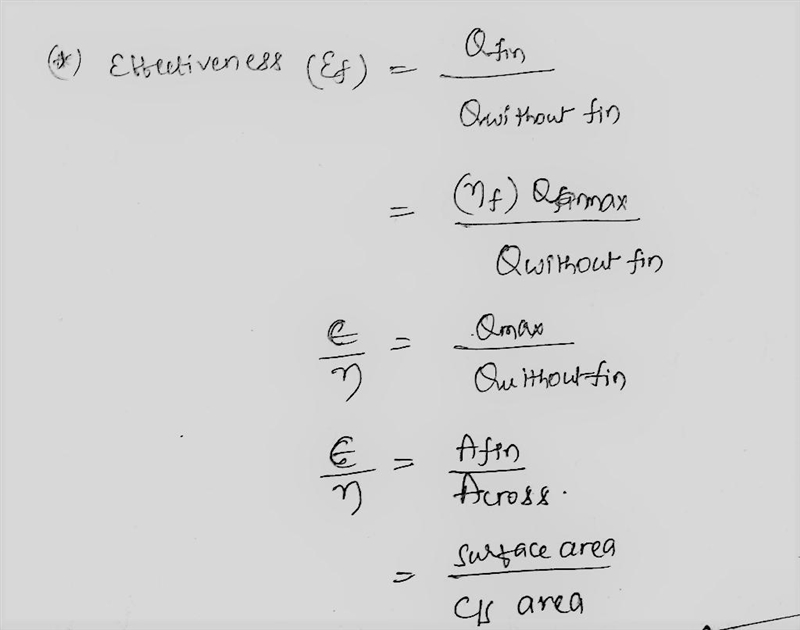 (*) Effectiveness (Ɛf) = Qfin / Qwithout fin
= (ηf) Qmax / Qwithout fin
Є / η = Qmax / Qwithout fin
Є / η = Afin / Across.
= surface area / C/s area